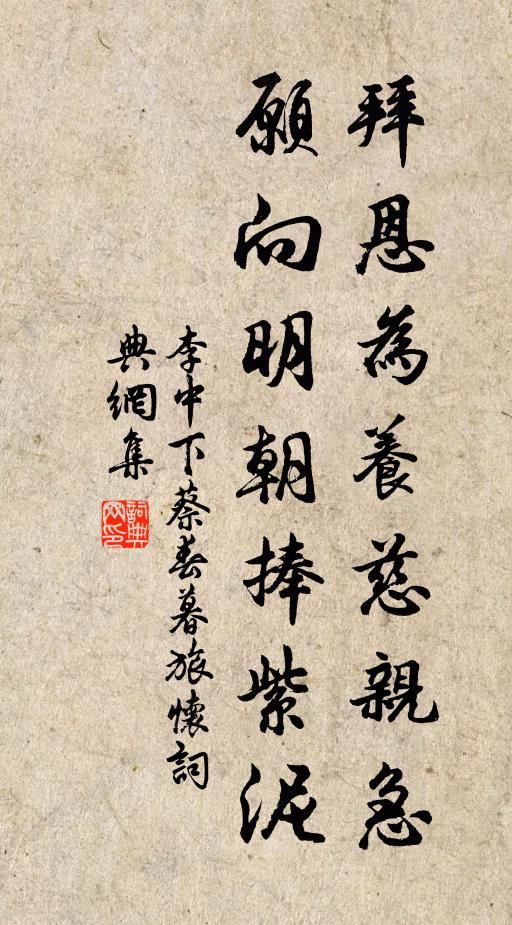 拜恩為養慈親急
願向明朝捧紫泥
李中下蔡春暮旅懷詞
典網集
詞典
网印